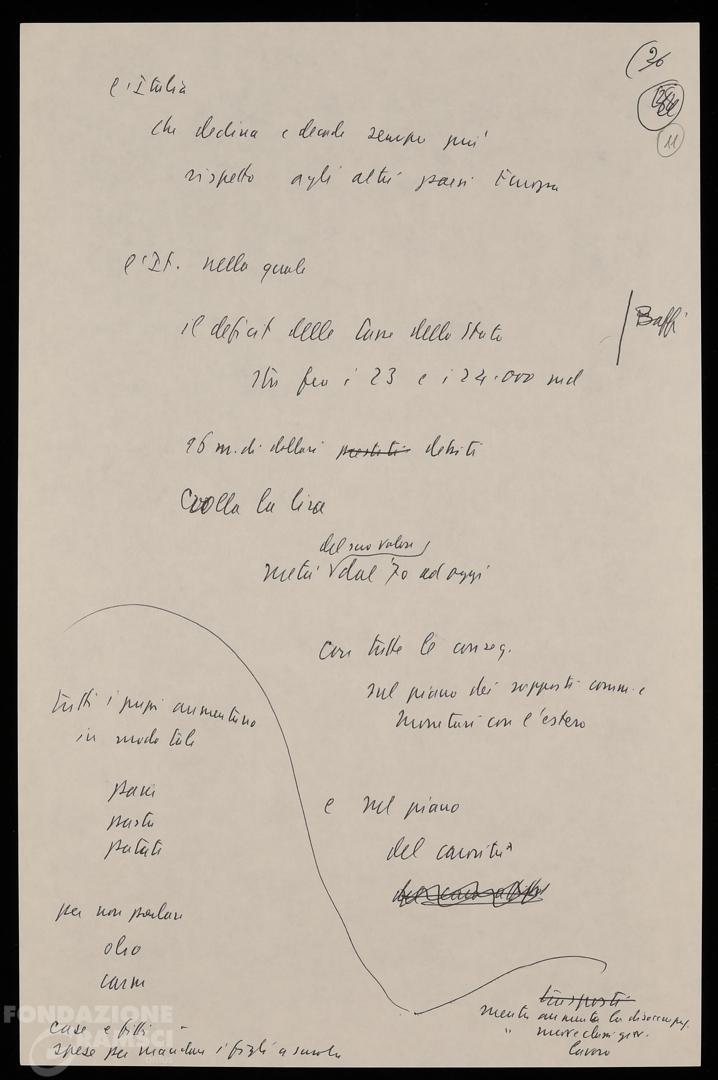 26
11
l'Italia
che declina e decade sempre più
rispetto agli altri paesi Europa
l'It. nella quale
il deficit delle Casse dello Stato
Baffi
sta fra i 23 e i 24.000 md
16 m.di dollari prestiti debiti
Crolla la lira
del suo valore
metà dal '70 ad oggi
con tutte le conseg.
sul piano dei rapporti comm. e
monetari con l'estero
e sul piano
del carovita
tutti i prezzi aumentano
in modo tale
pane
pasta
patate
per non parlare
olio
carne
case e fitti
spese per mandare i figli a scuola
trasporti
mentre aumenta la disoccupaz.
" nuove classi giov.
lavoro
FONDAZIONE
GRAMSCI